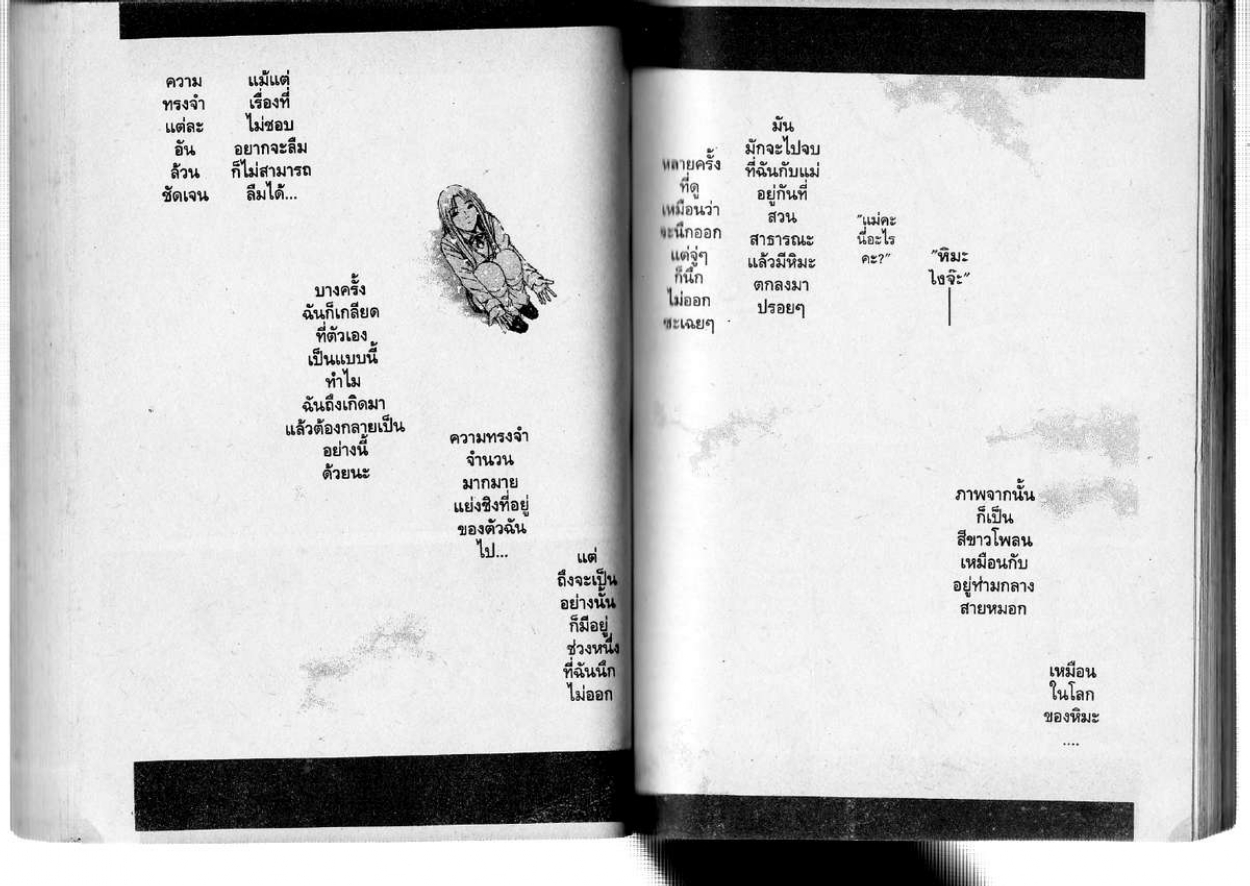 ความ
ทรงจำ
แต่ละ
อัน
ล้วน
ชัดเจน
แม้แต่
เรื่องที่
ไม่ชอบ
อยากจะลืม
ก็ไม่สามารถ
ลืมได้...
บางครั้ง
ฉันก็เกลียด
ที่ตัวเอง
เป็นแบบนี้
ทำไม
ฉันถึงเกิดมา
แล้วต้องกลายเป็น
อย่างนี้
ด้วยนะ
ความทรงจำ
จำนวน
มากมาย
แย่งชิงที่อยู่
ของตัวฉัน
ไป...
แต่
ถึงจะเป็น
อย่างนั้น
ก็มีอยู่
ช่วงหนึ่ง
ที่ฉันนึก
ไม่ออก
หลายครั้ง
ที่ดู
เหมือนว่า
จะนึกออก
แต่จู่ๆ
ก็นึก
ไม่ออก
ซะเฉยๆ
มัน
มักจะไปจบ
ที่ฉันกับแม่
อยู่กันที่
สวน
สาธารณะ
แล้วมีหิมะ
ตกลงมา
ปรอยๆ
"แม่คะ
นี่อะไร
คะ?"
"หิมะ
ไงจ๊ะ"
ภาพจากนั้น
ก็เป็น
สีขาวโพลน
เหมือนกับ
อยู่ท่ามกลาง
สายหมอก
เหมือน
ในโลก
ของหิมะ
....